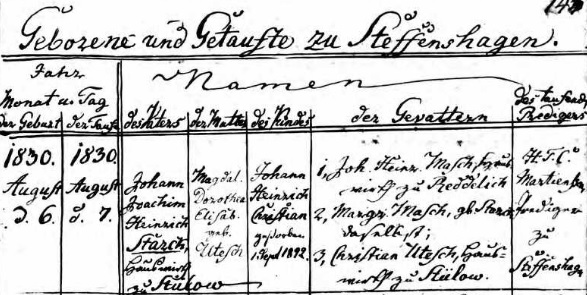 Geborene und Getaufte zu Steffenshagen.
Jahr
Monat u. Tag
der Geburt
der Taufe
Namen
des Vaters
der Mutter
des Kindes
der Gevattern
des taufend.
Predigers
1830.
August
d. 6.
1830.
August
d. 7.
Johann
Joachim
Heinrich
Starck,
Hauswirth
zu Stülow
Magdal.
Dorothea
Elisab.
geb.
Utesch
Johann
Heinrich
Christian
gestorben
1 Sept 1892.
1, Joh. Heinr. Masch, Haus-
wirth zu Reddelich
2, Margr. Masch, geb.
daselbst;
3, Christian Utesch, Haus-
wirth zu Stülow.
H. F. C.
Martienßen
Prediger
zu
Steffenshag.